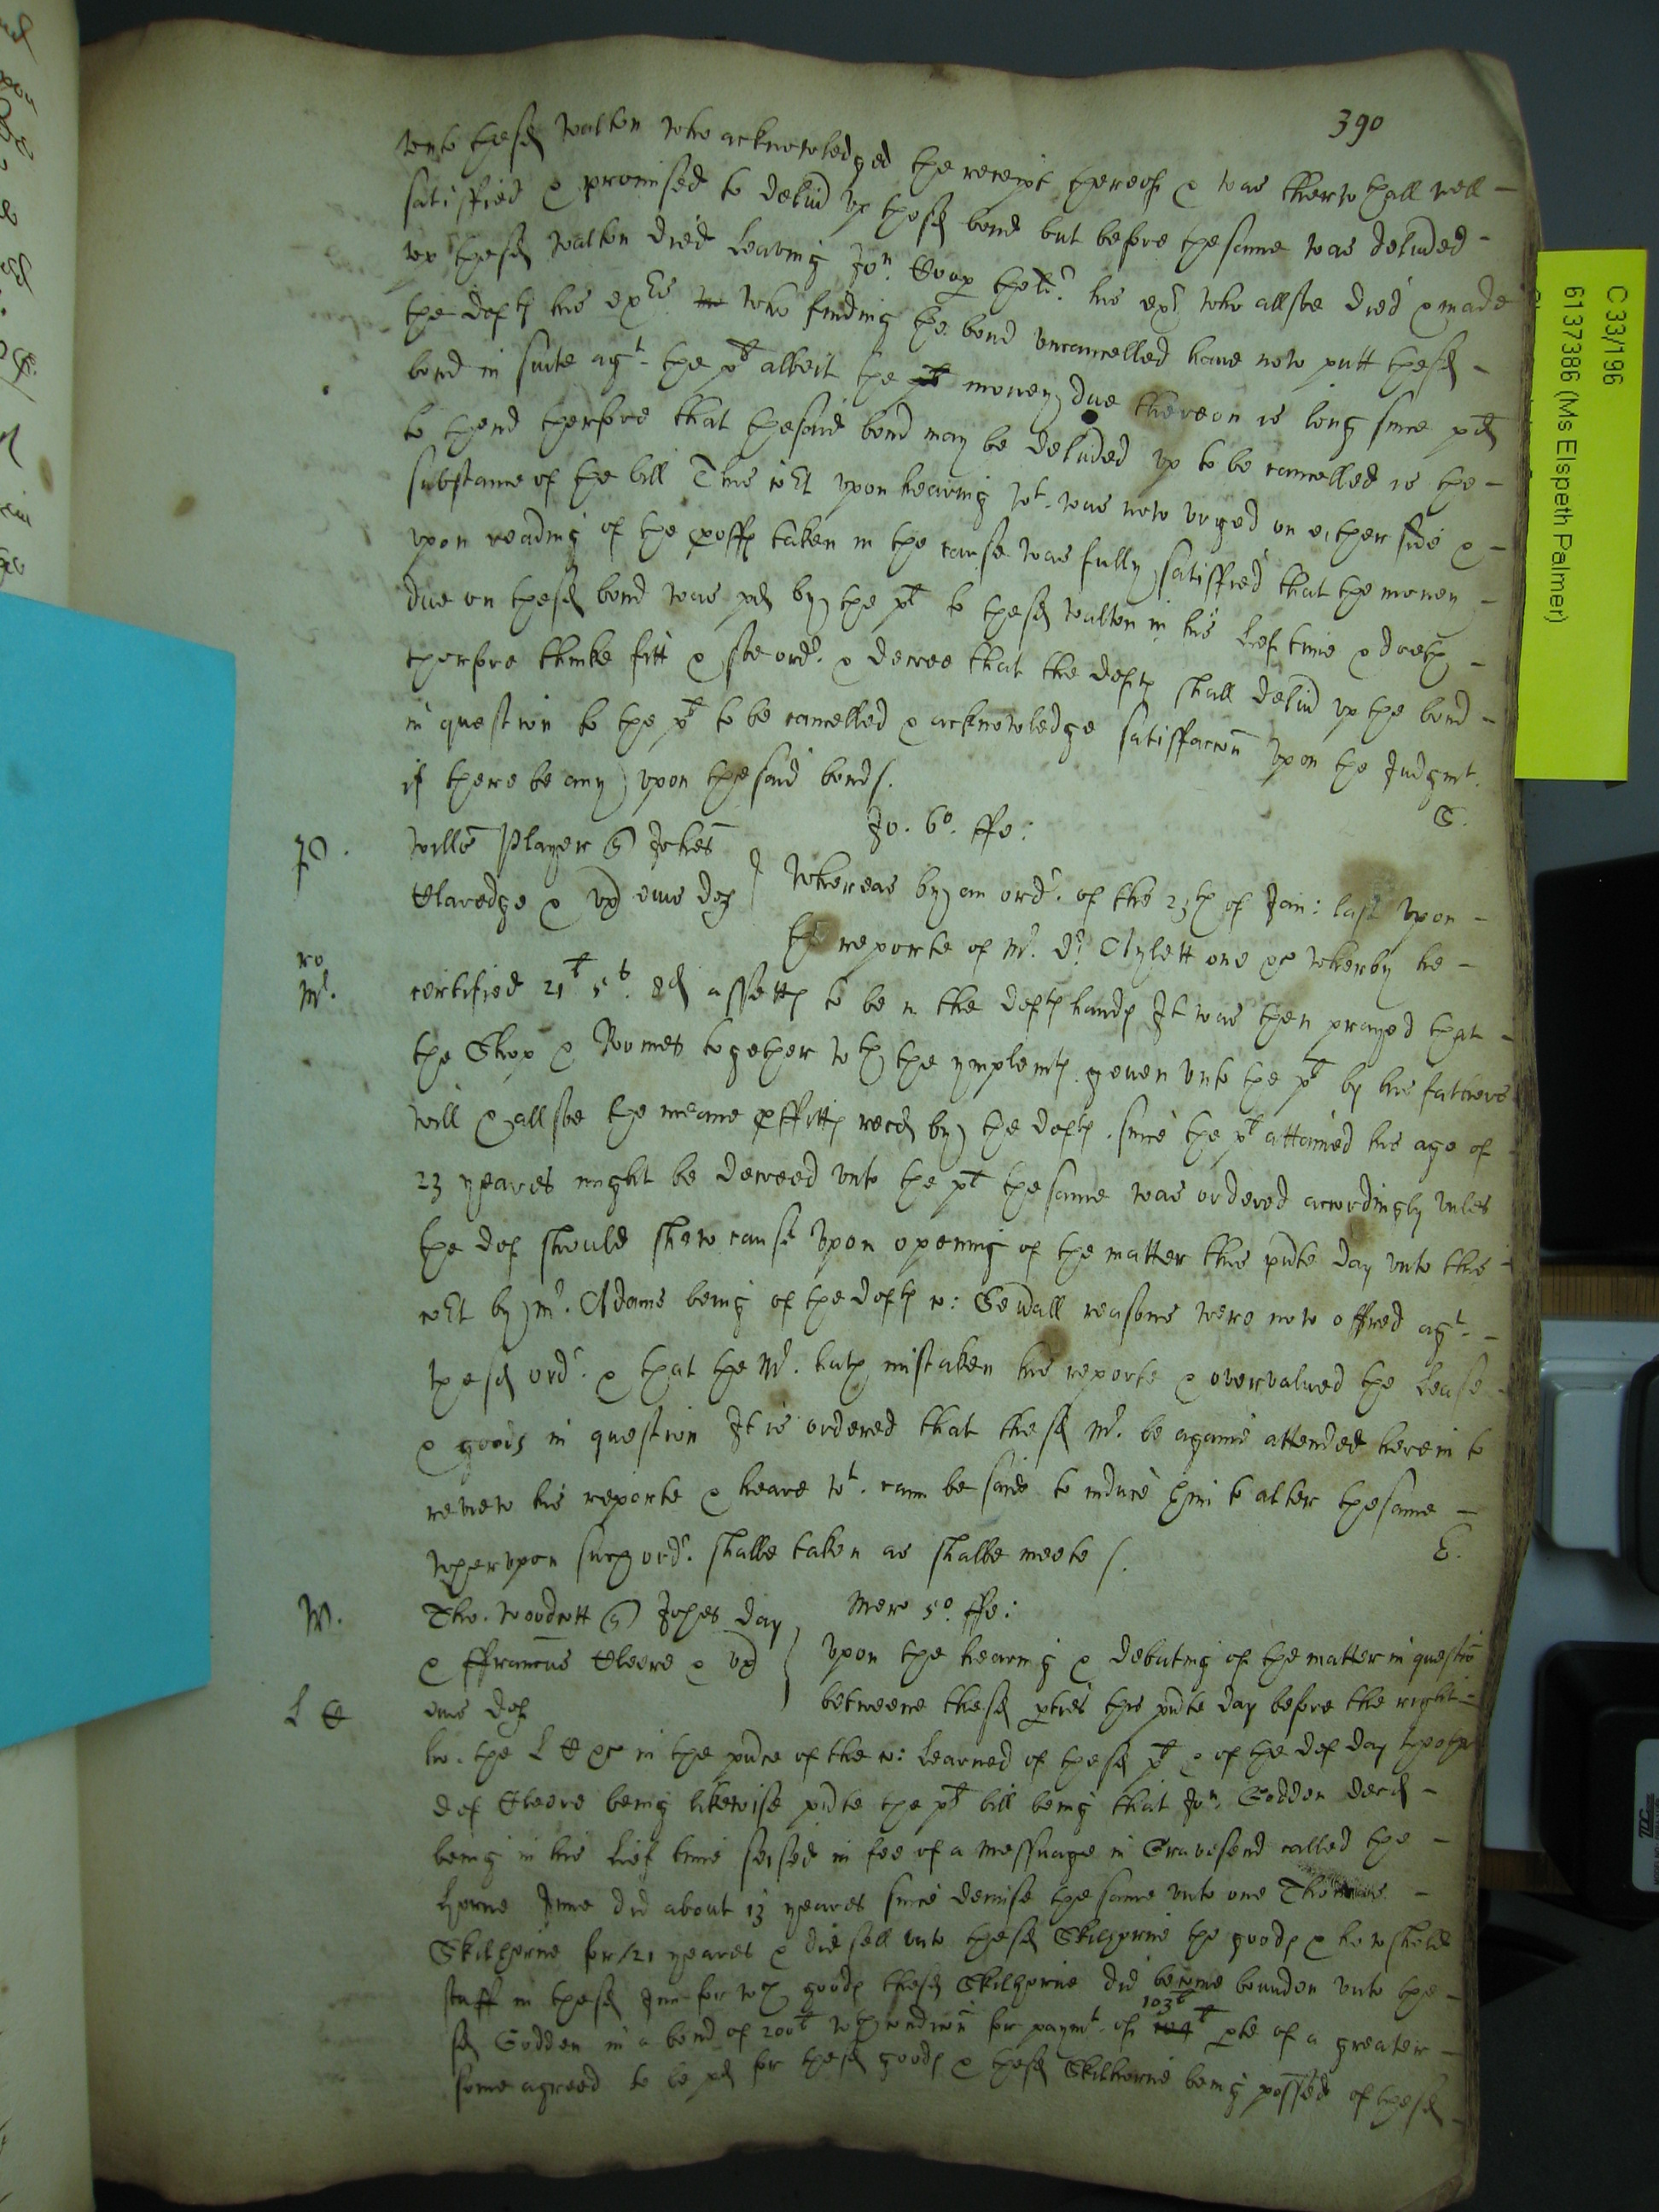 390
unto the sd Walton who acknowledged the receipt thereof & was therw thall well -
satisfied & promised to delivd up the sd bond but before the same was delivded -
up the sd Walton died leaving Jon. Coop his exr who allsoe died & made
the defts his exrs who finding the bond uncancelled have now putt the sd -
bond in suite agt. the plt albeit the money due thereon is long since pd
to thend therfore that the said bond may be delivded up to be cancelled is the -
substance of the bill This cort upon hearing wt. was now urged on either side & -
upon reading of the proffs taken in the cause was fully satisfied that the money -
due on the sd bond was pd by the plt to the sd Walton in his lief time & doeth -
therfore thinke fitt & soe ordr. & decree that the defts shall delivd up the bond -
in question to the plt to be cancelled & acknowledge satisfaccon upon the Judgmt.
if there be any upon the said bond /.
S.
Jo. 6o. ffe:
P.
Willo Player Johes
Claredge & ux eius def
Whereas by an ordr. of the 23th of Jan: last upon -
the reporte of Mr. Dr. Aylett one &c wherby he -
ro
Mr.
certified 21l 5s. 8d assetts to be n the defts hands It was then prayed that -
the Shop & Roomes together wth the ymplemts geven unto the plt by his fathers
will & allsoe the meane pffitts recd by the defts. since the plt attained his age of -
23 yeares might be decreed unto the plt the same was ordered accordingly unles
the def should shew cause Upon opening of the matter this pnte day unto this -
cort by mr. Adams being of the defts co: Sewall reasons were now offred agt. -
the sd ordr. & that the Mr. hath mistaken his reporte & overvalued the lease -
& goods in question It is ordered that the sd Mr. be againe attended herein to
review his reporte & heare wt. cann be said to induce him to alter the same -
wherupon such ordr. shalbe taken as shalbe meete /.
E.
Merc 5o. ffe:
W.
Tho. Woodcott Johes Day
& ffranciscus Cleere & ux
eius def
Upon the hearing & debating of the matter in questio
betweene the sd pties this pnte day before the right -
L C
ho. the L C &c in the pnce of the co: learned of the sd plt & of the def Day thother
def Cleere being likewise pnte the plts bill being that Jon. Godden decd -
being in his lief time seised in fee of a messuage in Gravesend called the -
horne Inne did about 13 yeares since demise the same unto one Thomas -
Skilhorne for 21 yeares & did sell unto the sd Skilhorne the goods & howshold
stuff in the sd Inn for wch goods the sd Skilhorne did become bounden unto the -
103l
sd Godden in a bond of 200l wth condicon for paymt. of 104l pte of a greater -
some agreed to be pd for the sd goods & the sd Skilhorne being possed of the sd -
C 33/196
6137386 (Ms Elspeth Palmer)